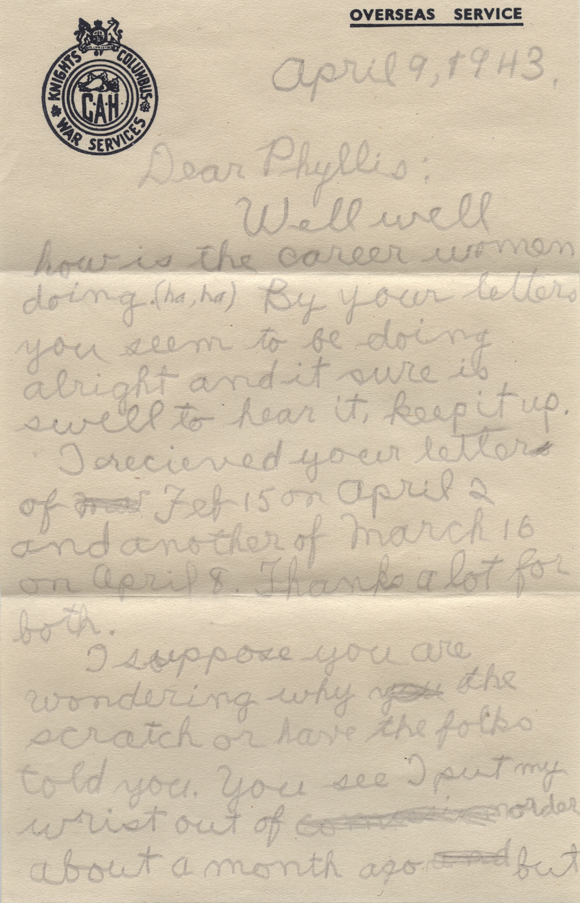 OVERSEAS SERVICE
KNIGHTS OF COLUMBUS
CAH
WAR SERVICES
April 9, 1943.
Dear Phyllis:
Well well
how is the career women
doing. (ha, ha) By your letters
you seem to be doing
alright and it sure is
swell to hear it, keep it up.
I recieved your letters
of Feb 15 on April 2
and another of March 16
on April 8. Thanks a lot for
both.
I suppose you are
wondering why the
scratch or have the folks
told you. You see I put my
wrist out of order
about a month ago but